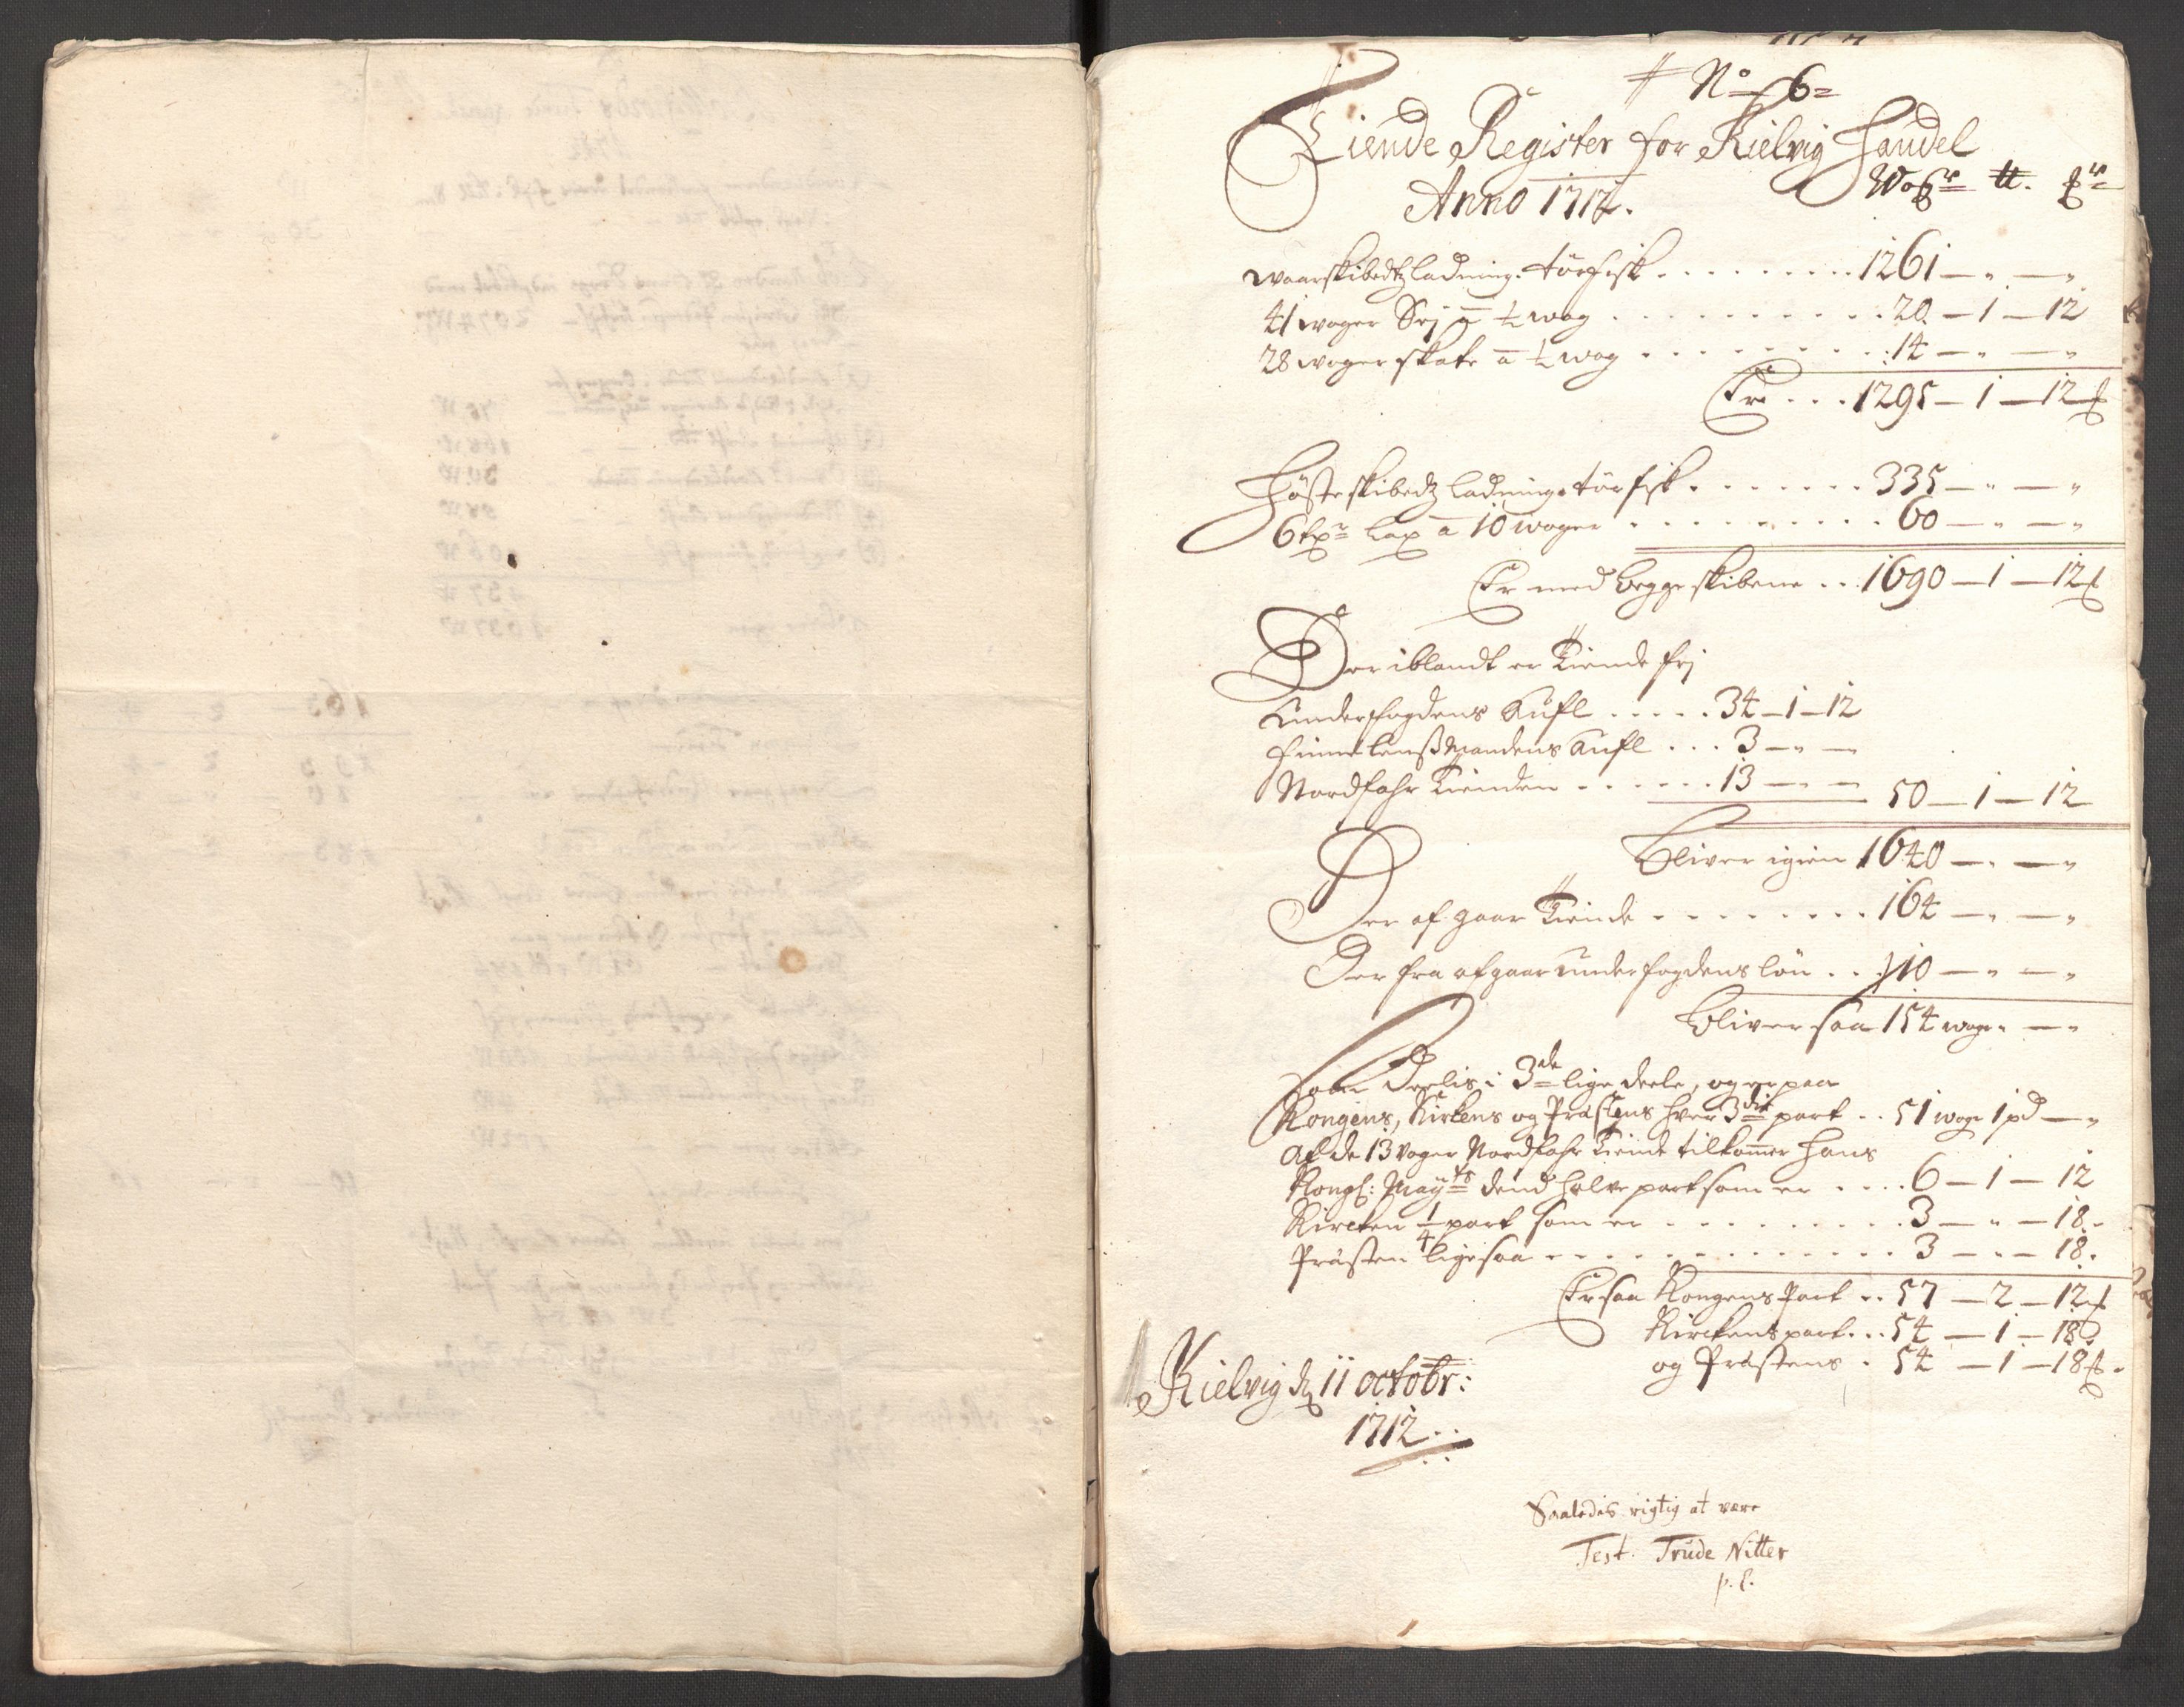 No 6
Tiende Register for Kielvig Handel
Wogr tt. pr
Anno 1712.
waarskibedtz ladning. törfisk . . . . . . . . . 1261 — " — "
41 woger Sej a ½ wog . . . . . . . . . . 20 — 1 — 12
28 woger skate a ½ wog . . . . . . . . . 14 — " — "
Er . . . 1295 — 1 — 12
Höste skibedtz ladning. törfisk . . . . . . . 335 — " — "
6 tnr Lax a 10 woger . . . . . . . . . . 60 — " — "
Er med begge skibene . . 1690 — 1 — 12
Der iblandt er Tiende frj
Underfogdens Kufl . . . . . 34 — 1 — 12
Finne lenssmandens Kufl . . . 3 — " —
Nordfahr Tienden . . . . . . 13 — " — 50 — 1 — 12
Bliver igien 1640 — " — "
Der af gaar Tiende . . . . . . . . 164 — " — "
Der fra afgaar underfogdens lön . . 10 — " — "
Bliver saa 154 woge " — "
Som deelis i 3de lige deele, og er paa
Kongens, Kirkens og Præstens hver 3die part . . 51 woge 1 pd — "
Af de 13 Voger Nordfahr Tiende tilkommer Hans
Kongl: Mayts dend halve part som er . . . . 6 — 1 — 12
Kircken ¼ part som er . . . . . . . . . . 3 — " — 18.
Præsten ligesaa . . . . . . . . . . . . . . . 3 — " — 18.
Er saa Kongens Part . . 57 — 2 — 12
Kirckens part . . . 54 — 1 — 18
og Præstens . 54 — 1 — 18
Kielvig d 11 octobr:
1712 . .
Saaledis rigtig at være
Test. Trude Nitter
p. E.